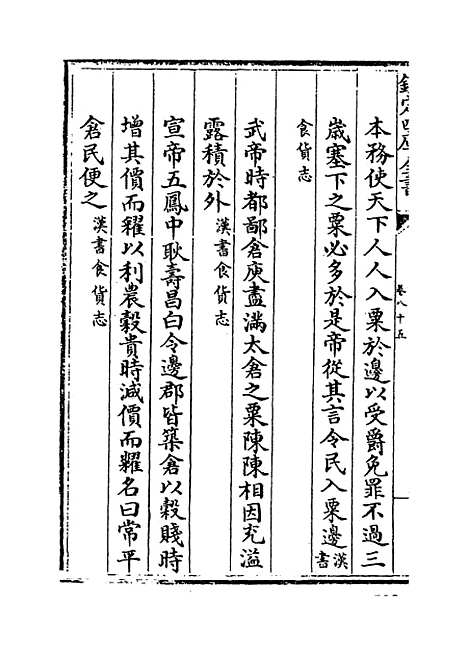 欽定四庫全書
卷八十五
本務使天下人人入粟於邊以受爵免罪不過三
歳塞下之粟必多於是帝從其言令民入粟邊漢書
食貨志
武帝時都鄙倉庾盡滿太倉之粟陳陳相因充溢
露積於外漢書食貨志
宣帝五鳳中耿壽昌白令邊郡皆築倉以穀賤時
增其價而糴以利農穀貴時減價而糶名曰常平
倉民便之漢書食貨志